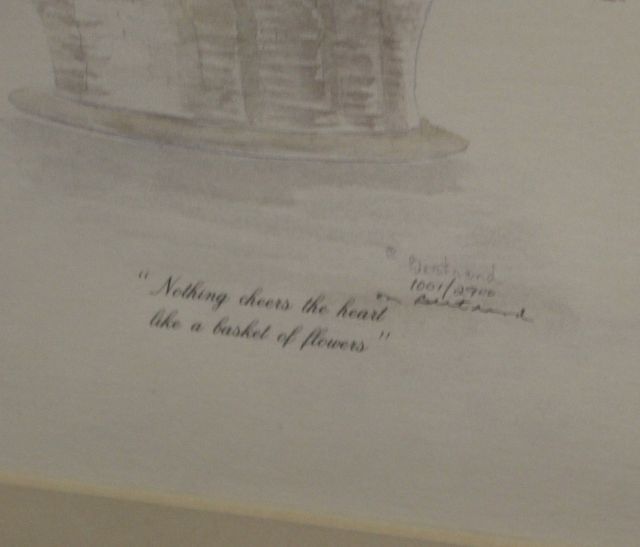 Bertrand
1001/2900
Bertrand
" Nothing cheers the heart
like a basket of flowers "